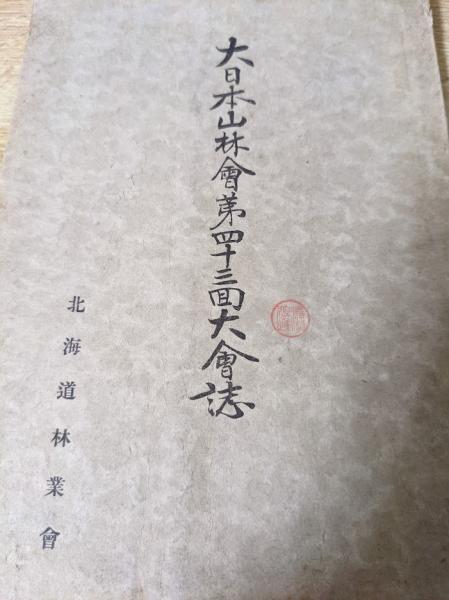 大日本山林會第四十三回大會誌
北海道林業會